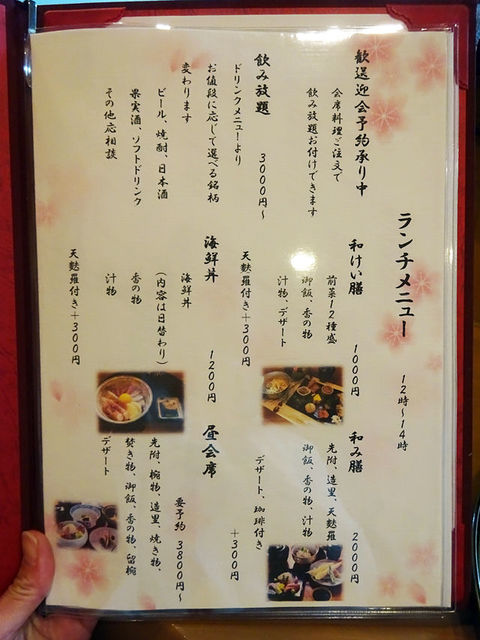 ランチメニュー　12時～14時
歓送迎会予約承り中
会席料理ご注文で
飲み放題お付けできます
飲み放題　3000円～
ドリンクメニューより
お値段に応じて選べる銘柄
変わります
ビール、焼酎、日本酒
果実酒、ソフトドリンク
その他応相談
和けい膳　1000円
前菜12種盛
御飯、香の物
汁物、デザート
天麩羅付き＋300円
海鮮丼　1200円
海鮮丼
（内容は日替わり）
香の物
汁物
天麩羅付き＋300円
和み膳　2000円
先附、造里、天麩羅
御飯、香の物、汁物
デザート、珈琲付き
＋300円
昼会席
要予約　3800円～
先附、椀物、造里、焼き物、
焚き物、御飯、香の物、留椀
デザート